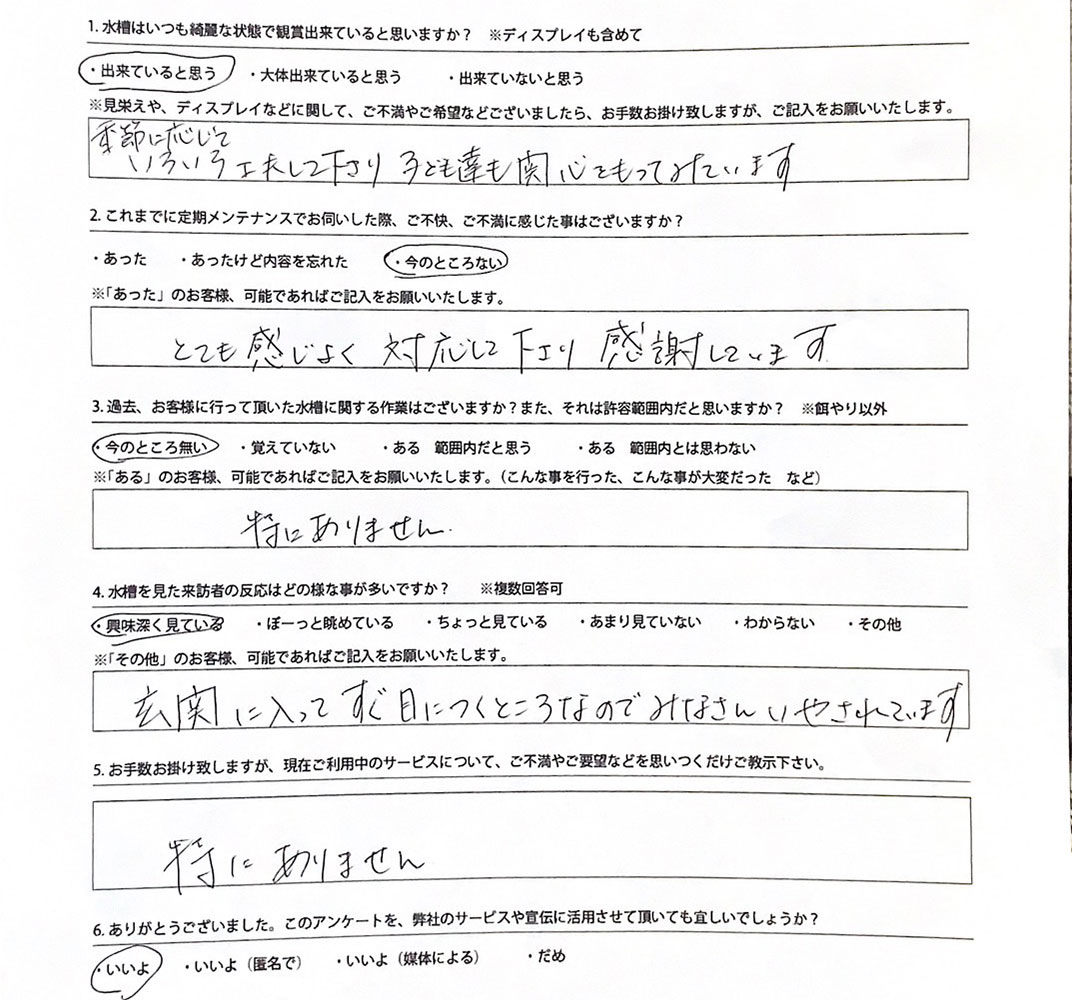 1. 水槽はいつも綺麗な状態で観賞出来ていると思いますか？　※ディスプレイも含めて
・出来ていると思う　・大体出来ていると思う　・出来ていないと思う
※見栄えや、ディスプレイなどに関して、ご不満やご希望などございましたら、お手数お掛け致しますが、ご記入をお願いいたします。
季節に応じて
いろいろ工夫して下さり 子ども達も関心をもってみています
2. これまでに定期メンテナンスでお伺いした際、ご不快、ご不満に感じた事はございますか？
・あった　・あったけど内容を忘れた　・今のところない
※「あった」のお客様、可能であればご記入をお願いいたします。
とても感じよく 対応して下さり 感謝しています
3. 過去、お客様に行って頂いた水槽に関する作業はございますか？また、それは許容範囲内だと思いますか？　※餌やり以外
・今のところ無い　・覚えていない　・ある　範囲内だと思う　・ある　範囲内とは思わない
※「ある」のお客様、可能であればご記入をお願いいたします。（こんな事を行った、こんな事が大変だった　など）
特にありません.
4. 水槽を見た来訪者の反応はどの様な事が多いですか？　※複数回答可
・興味深く見ている　・ぼーっと眺めている　・ちょっと見ている　・あまり見ていない　・わからない　・その他
※「その他」のお客様、可能であればご記入をお願いいたします。
玄関に入って すぐ目につくところなのでみなさんいやされています
5. お手数お掛け致しますが、現在ご利用中のサービスについて、ご不満やご要望などを思いつくだけご教示下さい。
特に ありません
6. ありがとうございました。このアンケートを、弊社のサービスや宣伝に活用させて頂いても宜しいでしょうか？
・いいよ　・いいよ（匿名で）　・いいよ（媒体による）　・だめ